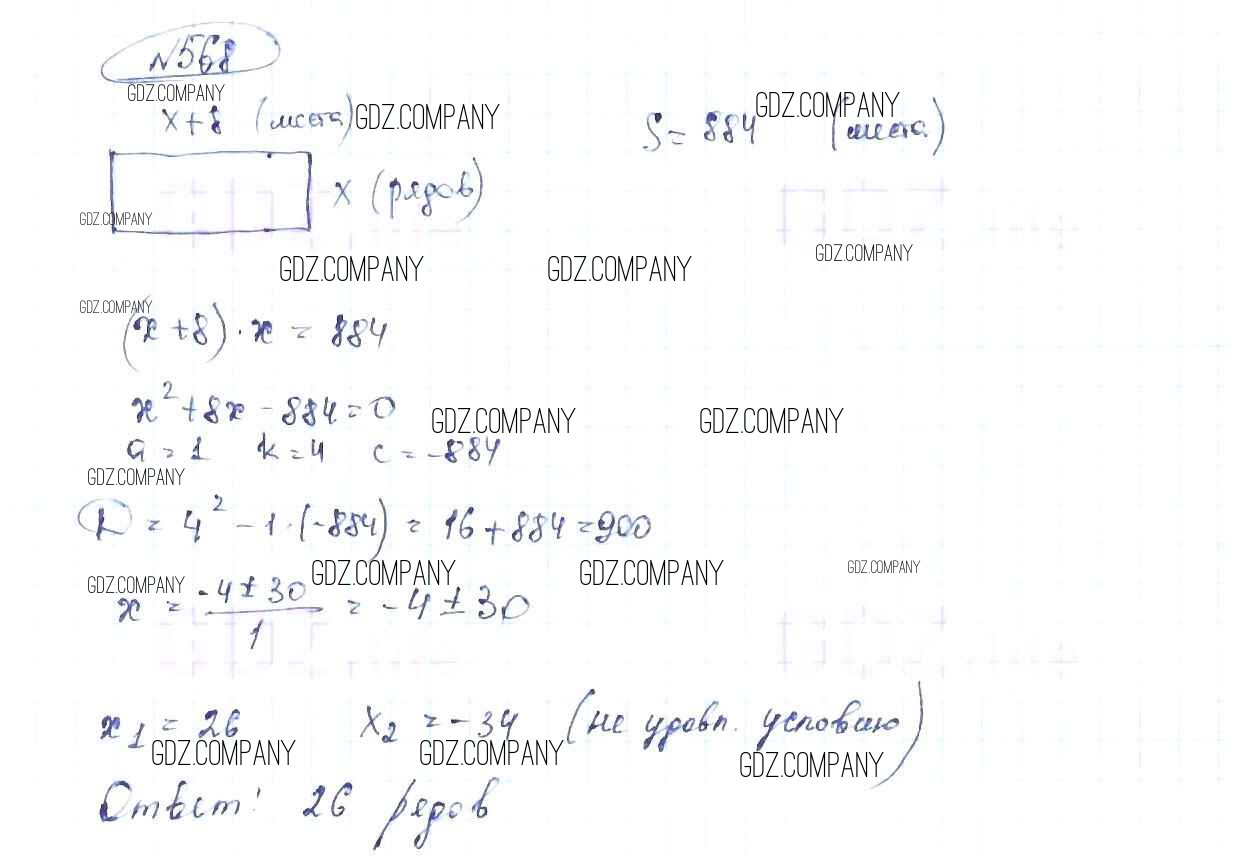 №568
GDZ.COMPANY
x+8 (места) GDZ.COMPANY S = 884 GDZ.COMPANY (места)
x (рядов)
GDZ.COMPANY
GDZ.COMPANY GDZ.COMPANY GDZ.COMPANY
GDZ.COMPANY
(x+8)·x = 884
x²+8x-884=0 GDZ.COMPANY GDZ.COMPANY
a=1 k=4 c=-884
GDZ.COMPANY
D = 4² - 1·(-884) = 16+884=900
GDZ.COMPANY GDZ.COMPANY GDZ.COMPANY GDZ.COMPANY
x = -4±30 / 1 = -4±30
x₁=26 x₂=-34 (не удовл. условию)
GDZ.COMPANY GDZ.COMPANY GDZ.COMPANY
Ответ: 26 рядов